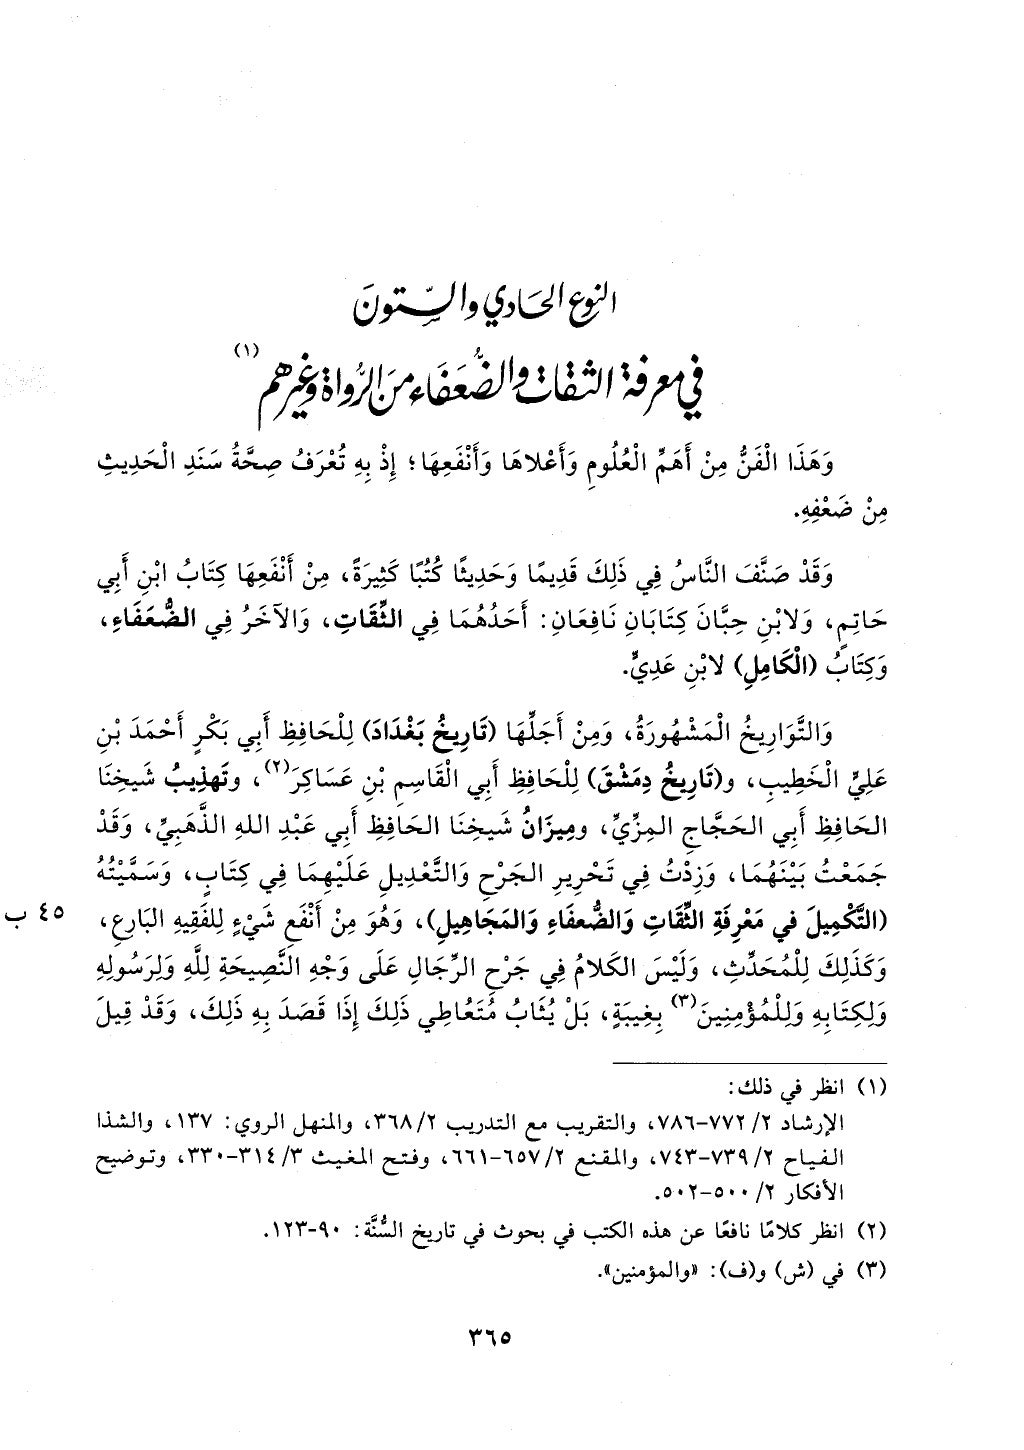 النوع الحادي والستون
في معرفة الثقات والضُّعَفَاء منَ الرُّواة وغيرهم (١)
وَهَذَا الْفَنُّ مِنْ أَهَمِّ الْعُلُومِ وَأَعْلاهَا وَأَنْفَعِهَا؛ إِذْ بِهِ تُعْرَفُ صِحَّةُ سَنَدِ الْحَدِيثِ
مِنْ ضَعْفِهِ.
وَقَدْ صَنَّفَ النَّاسُ فِي ذَلِكَ قَدِيمًا وَحَدِيثًا كُتُبًا كَثِيرَةً، مِنْ أَنْفَعِهَا كِتَابُ ابْنِ أَبِي
حَاتِمٍ، وَلابْنِ حِبَّانَ كِتَابَانِ نَافِعَانِ: أَحَدُهُمَا فِي الثِّقَاتِ، وَالآخَرُ فِي الضُّعَفَاءِ،
وَكِتَابُ (الْكَامِلِ) لابْنِ عَدِيٍّ.
وَالتَّوَارِيخُ الْمَشْهُورَةُ، وَمِنْ أَجَلِّهَا (تَارِيخُ بَغْدَادَ) لِلْحَافِظِ أَبِي بَكْرٍ أَحْمَدَ بْنِ
عَلِيٍّ الْخَطِيبِ، و(تَارِيخُ دِمَشْقَ) لِلْحَافِظِ أَبِي الْقَاسِمِ بْنِ عَسَاكِرَ(٢)، وتَهذِيبُ شَيخِنَا
الحَافِظِ أَبِي الحَجَّاجِ المِزِّيِّ، ومِيزَانُ شَيخِنَا الحَافِظِ أَبِي عَبْدِ اللهِ الذَّهَبِيِّ، وَقَدْ
جَمَعْتُ بَيْنَهُمَا، وَزِدْتُ فِي تَحْرِيرِ الجَرْحِ وَالتَّعْدِيلِ عَلَيْهِمَا فِي كِتَابٍ، وَسَمَّيْتُهُ
(التَّكْمِيلَ في مَعْرِفَةِ الثِّقَاتِ وَالضُّعفَاءِ وَالمَجَاهِيلِ)، وَهُوَ مِنْ أَنْفَعِ شَيْءٍ لِلفَقِيهِ البَارِعِ، ٤٥ ب
وَكَذَلِكَ لِلْمُحَدِّثِ، وَلَيْسَ الكَلامُ فِي جَرْحِ الرِّجَالِ عَلَى وَجْهِ النَّصِيحَةِ لِلَّهِ وَلِرَسُولِهِ
وَلِكِتَابِهِ وَلِلْمُؤْمِنِينَ(٣) بِغِيبَةٍ، بَلْ يُثَابُ مُتَعَاطِي ذَلِكَ إِذَا قَصَدَ بِهِ ذَلِكَ، وَقَدْ قِيلَ
(١) انظر في ذلك:
الإرشاد ٢/ ٧٧٢-٧٨٦، والتقريب مع التدريب ٢/ ٣٦٨، والمنهل الروي: ١٣٧، والشذا
الفياح ٢/ ٧٣٩-٧٤٣، والمقنع ٢/ ٦٥٧-٦٦١، وفتح المغيث ٣/ ٣١٤-٣٣٠، وتوضيح
الأفكار ٢/ ٥٠٠-٥٠٢.
(٢) انظر كلامًا نافعًا عن هذه الكتب في بحوث في تاريخ السُّنَّة: ٩٠-١٢٣.
(٣) في (ش) و(ف): «والمؤمنين».
٣٦٥